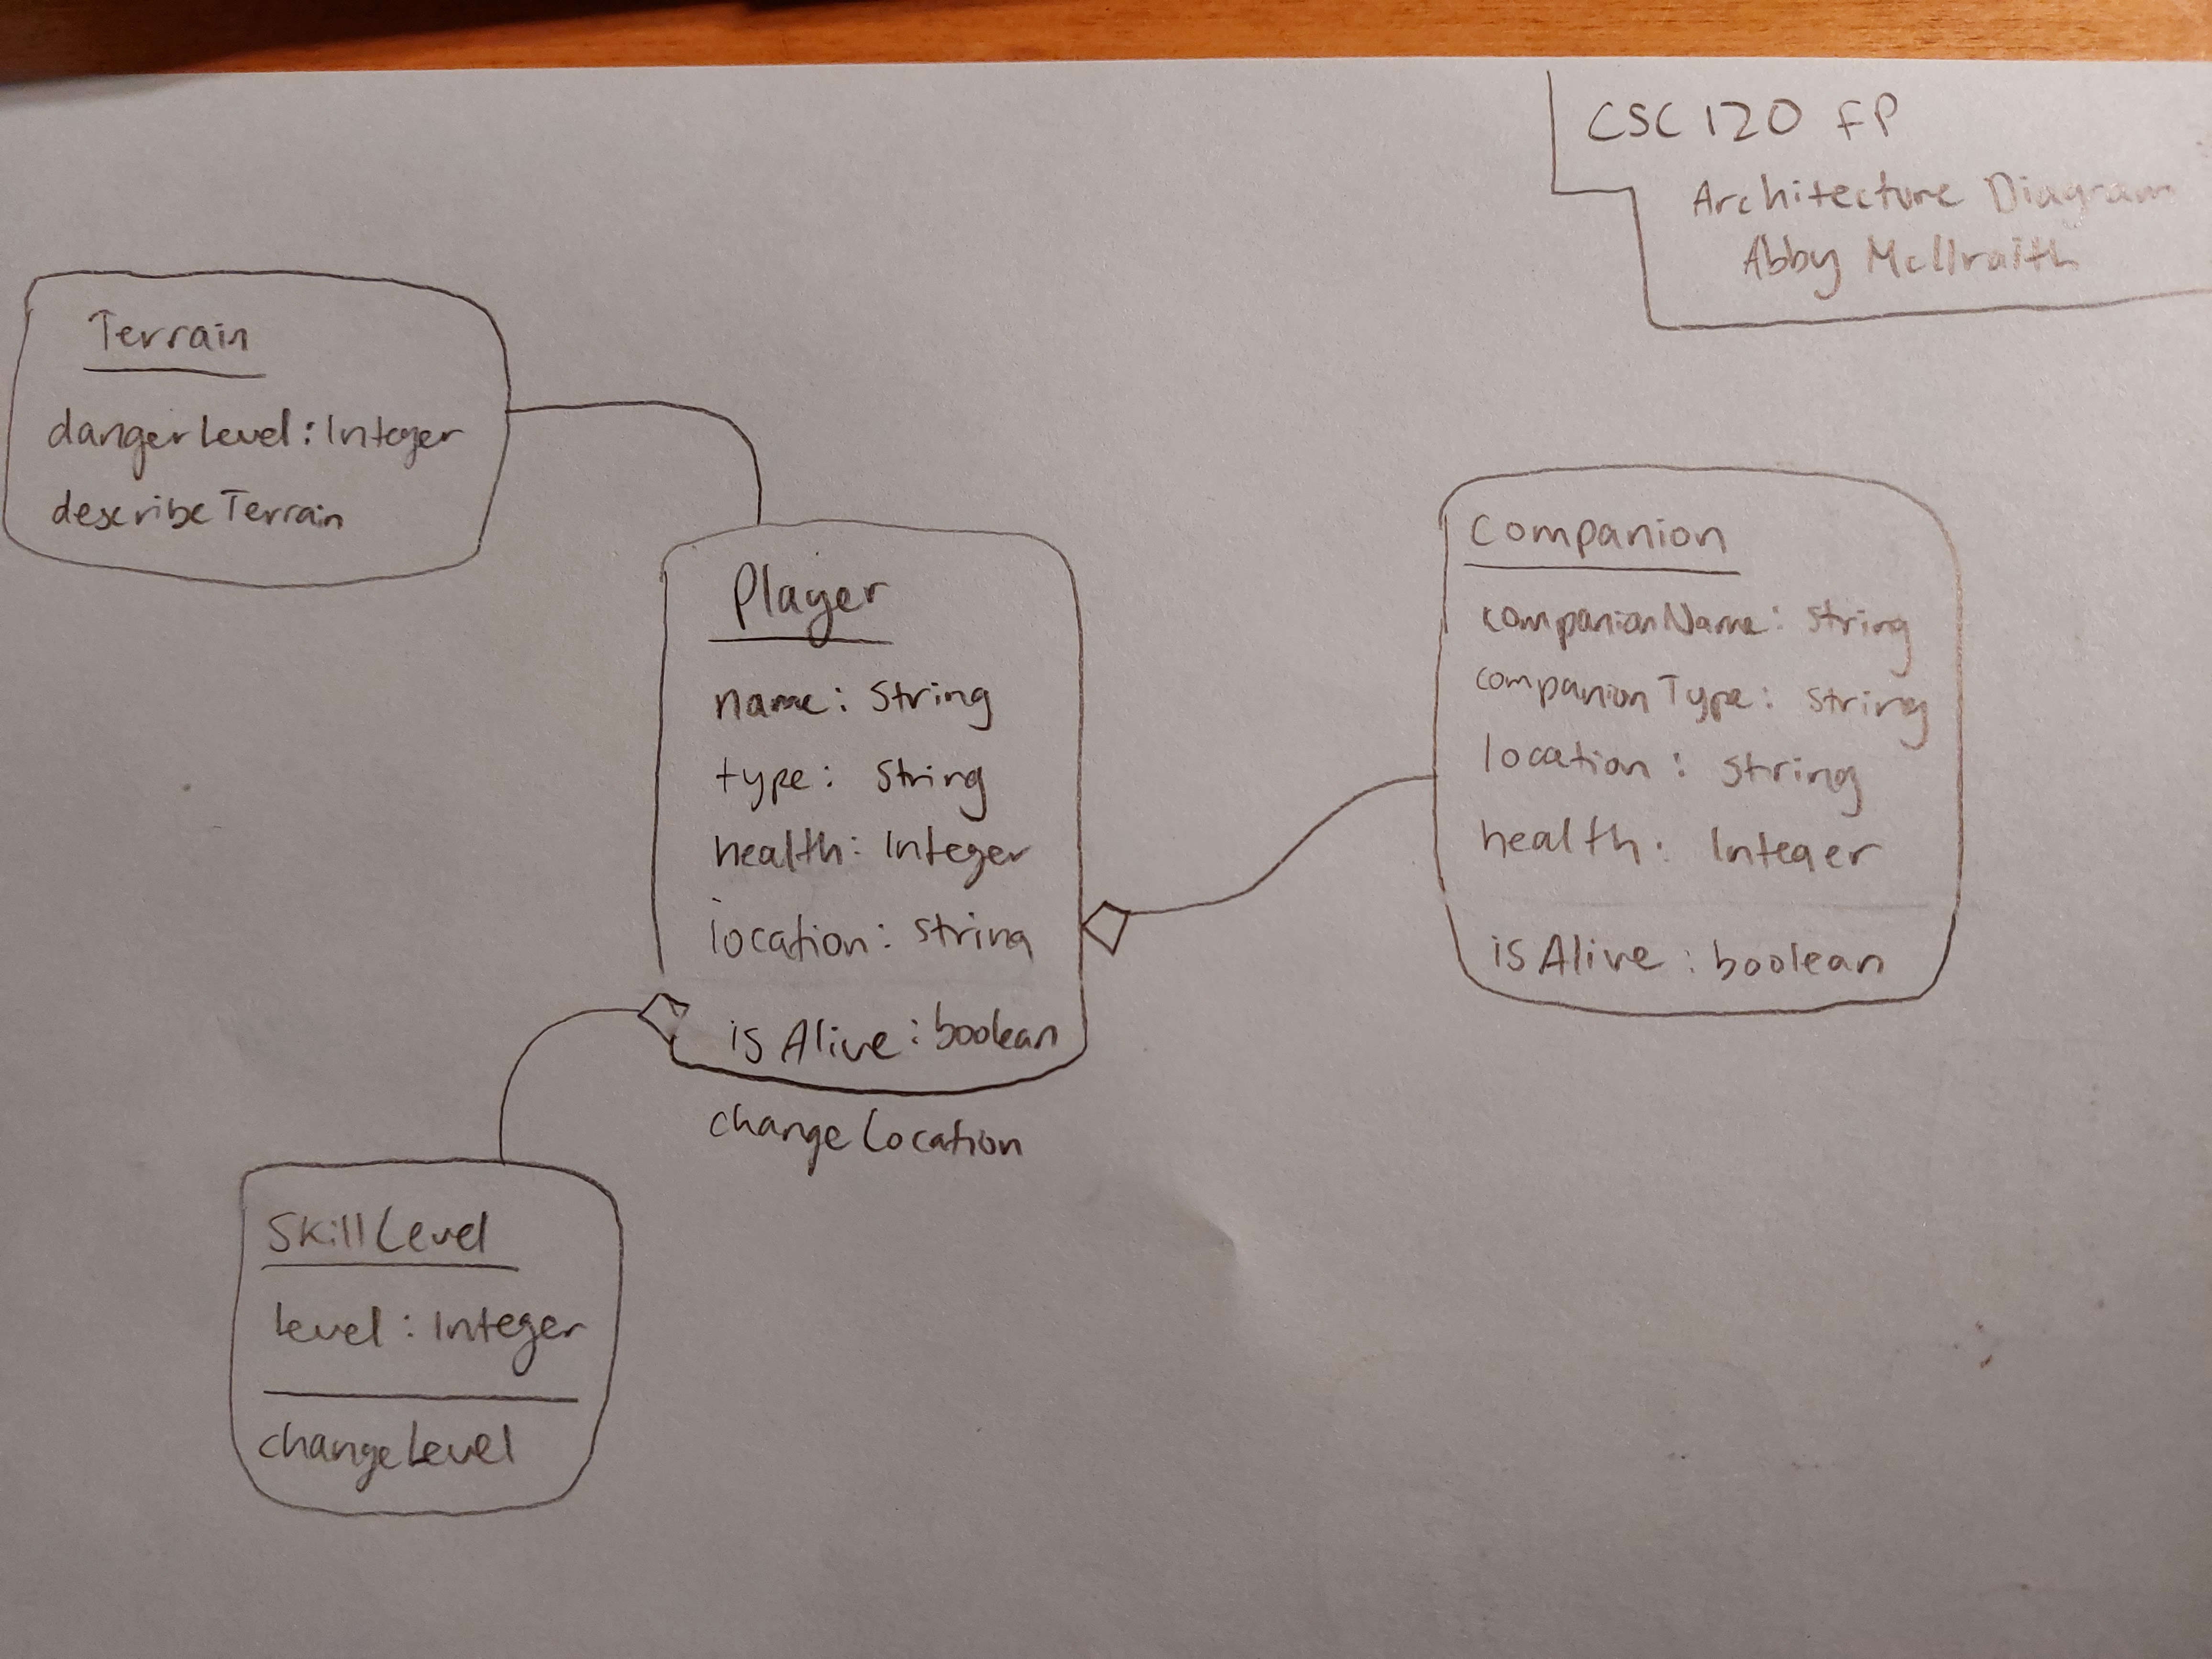 CSC120 FP
Architecture Diagram
Abby McIlraith
Terrain
dangerLevel: Integer
describeTerrain
Player
name: String
type: String
health: Integer
location: string
isAlive: boolean
changeLocation
Companion
companionName: string
companionType: string
location: string
health: Integer
isAlive: boolean
SkillLevel
level: Integer
changeLevel